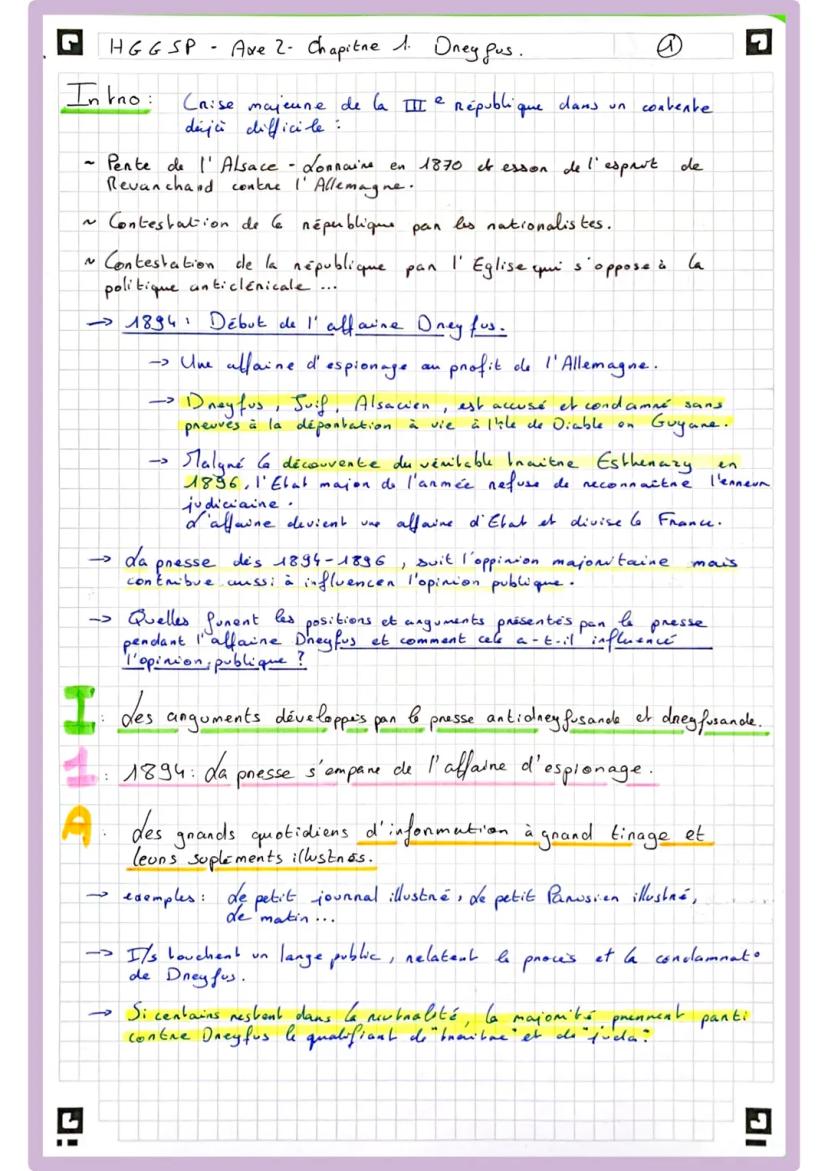 HGGSP - Axe 2 - Chapitre 1. Dreyfus.
1
Intro : Crise majeure de la IIIe république dans un contexte
déjà difficile :
~ Perte de l'Alsace - Lorraine en 1870 et essor de l'esprit de
Revanchard contre l'Allemagne.
~ Contestation de la république par les nationalistes.
~ Contestation de la république par l'Eglise qui s'oppose à la
politique anticléricale ...
→ 1894 : Début de l'affaire Dreyfus.
→ Une affaire d'espionage au profit de l'Allemagne.
→ Dreyfus, Juif, Alsacien, est accusé et condamné sans
preuves à la déportation à vie à l'île de Diable en Guyane.
→ Malgré la découverte du véritable traitre Estherazy en
1896, l'Etat major de l'armée refuse de reconnaitre l'erreur
judiciaire.
L'affaire devient une affaire d'Etat et divise la France.
→ La presse dès 1894-1896, suit l'oppinion majoritaire mais
contribue aussi à influencer l'opinion publique.
→ Quelles furent les positions et arguments présentés par la presse
pendant l'affaire Dreyfus et comment cela a-t-il influencé
l'opinion publique ?
I : Les arguments développés par la presse antidreyfusarde et dreyfusarde.
1 : 1894 : La presse s'empare de l'affaire d'espionage.
A : Les grands quotidiens d'information à grand tirage et
leurs supléments illustrés.
→ exemples : Le petit journal illustré, Le petit Parisien illustré,
Le matin ...
→ Ils touchent un large public, relatent le procès et la condamnat°
de Dreyfus.
→ Si certains restent dans la neutralité, la majorité prennent parti
contre Dreyfus le qualifiant de "traitre" et de "juda".